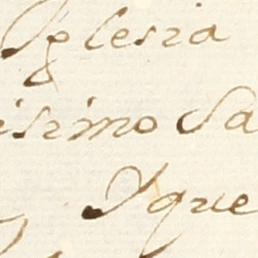 Iglesia
isimo Sa
Ique